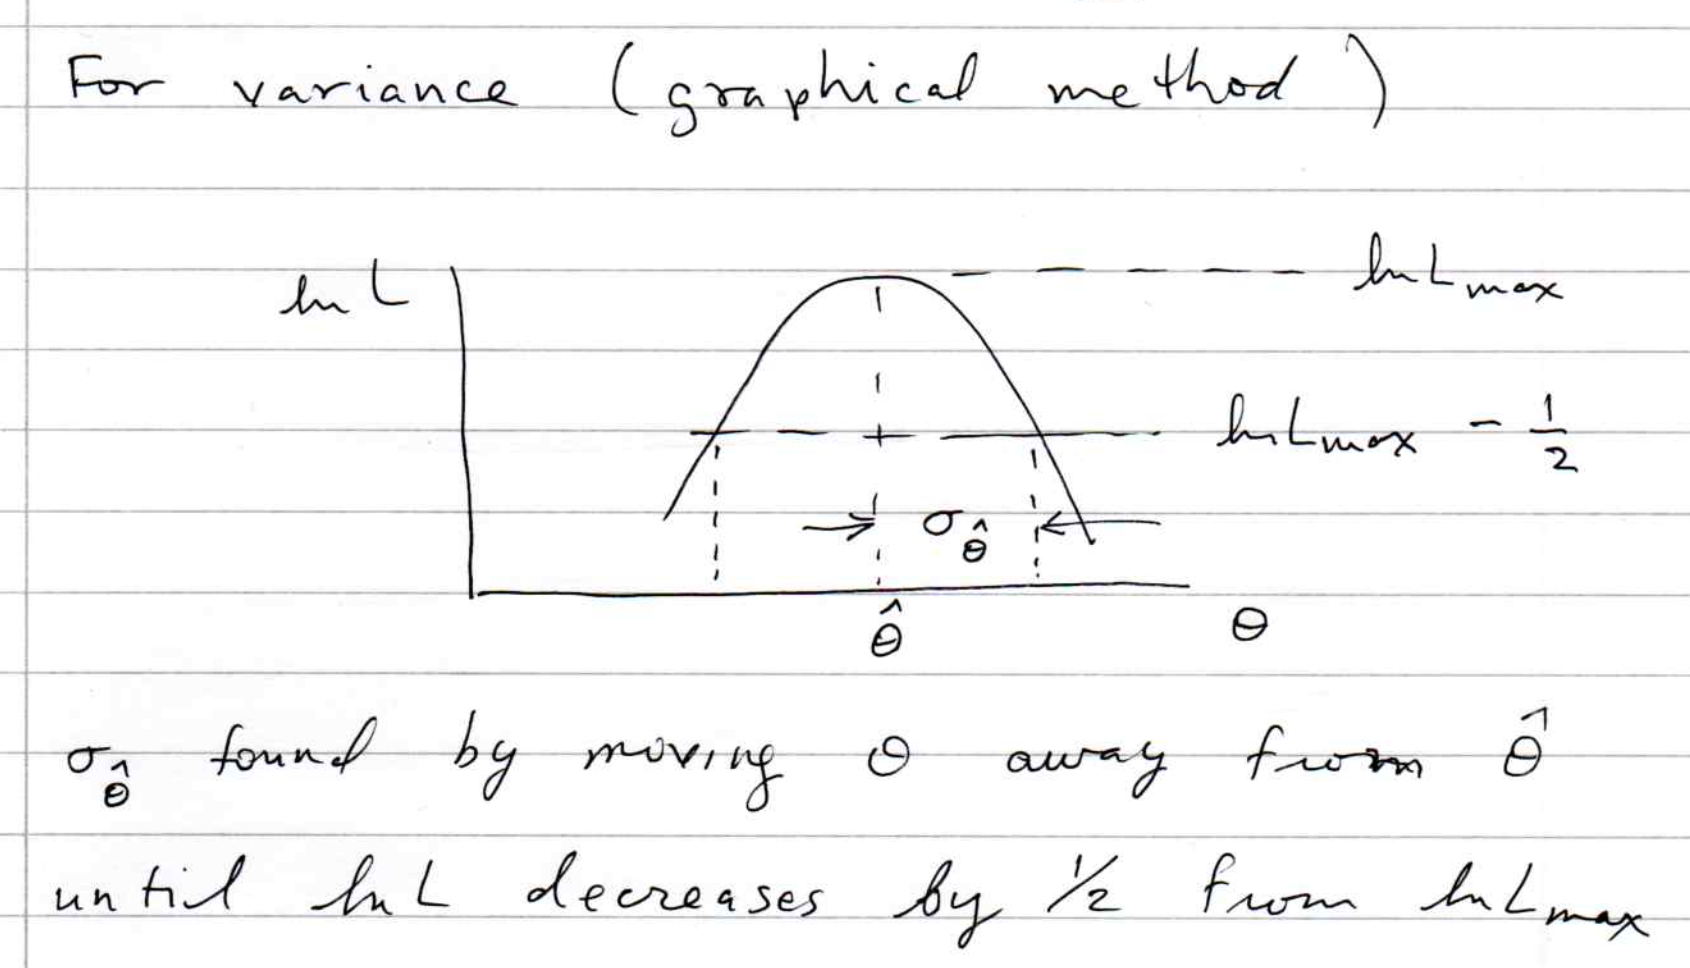 For variance (graphical method)
ln L
ln L_max
ln L_max - 1/2
σ_θ̂
θ̂
θ
σ_θ̂ found by moving θ away from θ̂
until ln L decreases by 1/2 from ln L_max